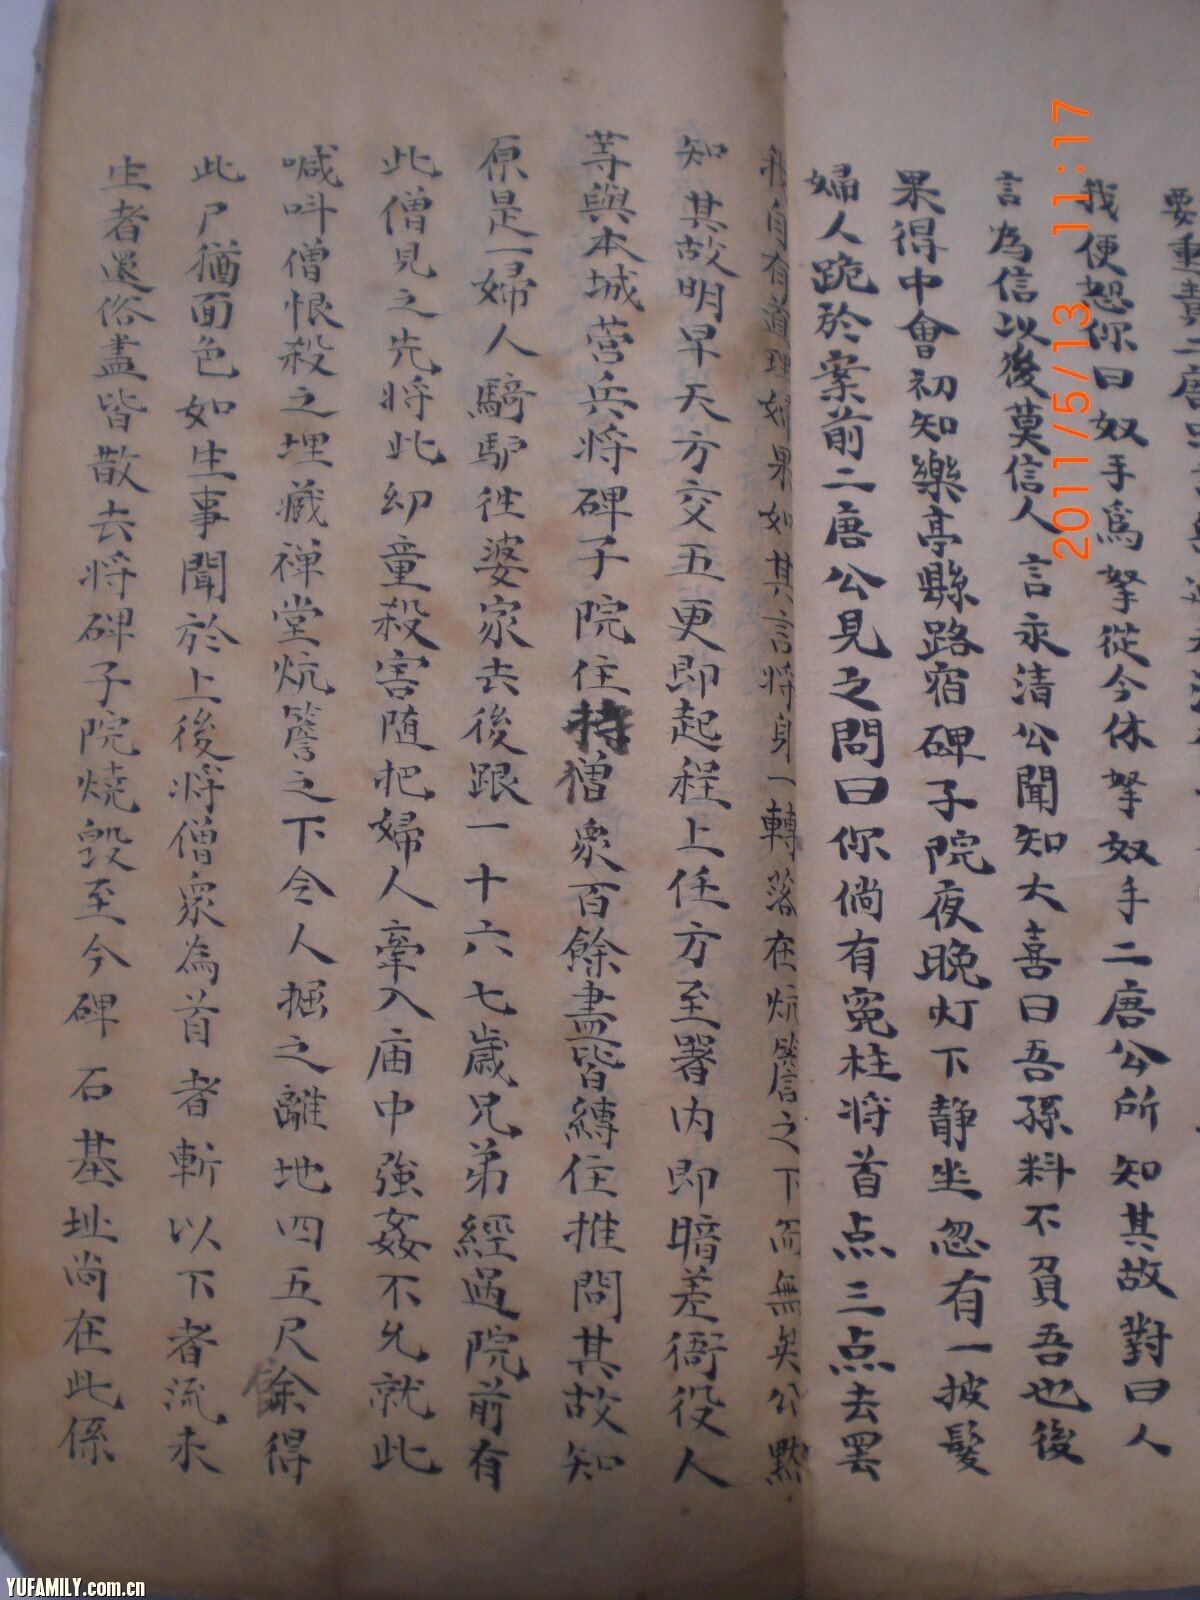 要重責二唐
我便恕你曰奴手為拏從今休拏奴手二唐公所知其故對曰人
言為信以後莫信人言永清公聞知大喜曰吾孫料不負吾也後
果得中會初知樂亭縣路宿碑子院夜晚灯下静坐忽有一披髮
婦人跪於案前二唐公見之問曰你倘有冤枉将首点三点去罢
我自有道理婦果如其言将身一轉落在炕簷之下而無矣公黙
知其故明早天方交五更即起程上任方至署内即暗差衙役人
等與本城营兵将碑子院住持僧衆百餘盡皆縛住推問其故知
原是一婦人騎驴徃婆家去後跟一十六七歲兄弟經過院前有
此僧見之先将此幼童殺害随把婦人牽入庙中強姦不允就此
喊呌僧恨殺之埋蔵禅堂炕簷之下令人掘之離地四五尺餘得
此尸猶面色如生事聞於上後将僧衆為首者斬以下者流未
生者還俗盡皆散去将碑子院燒毀至今碑石基址尚在此係
2011/5/13 11:17
YUFAMILY.com.cn